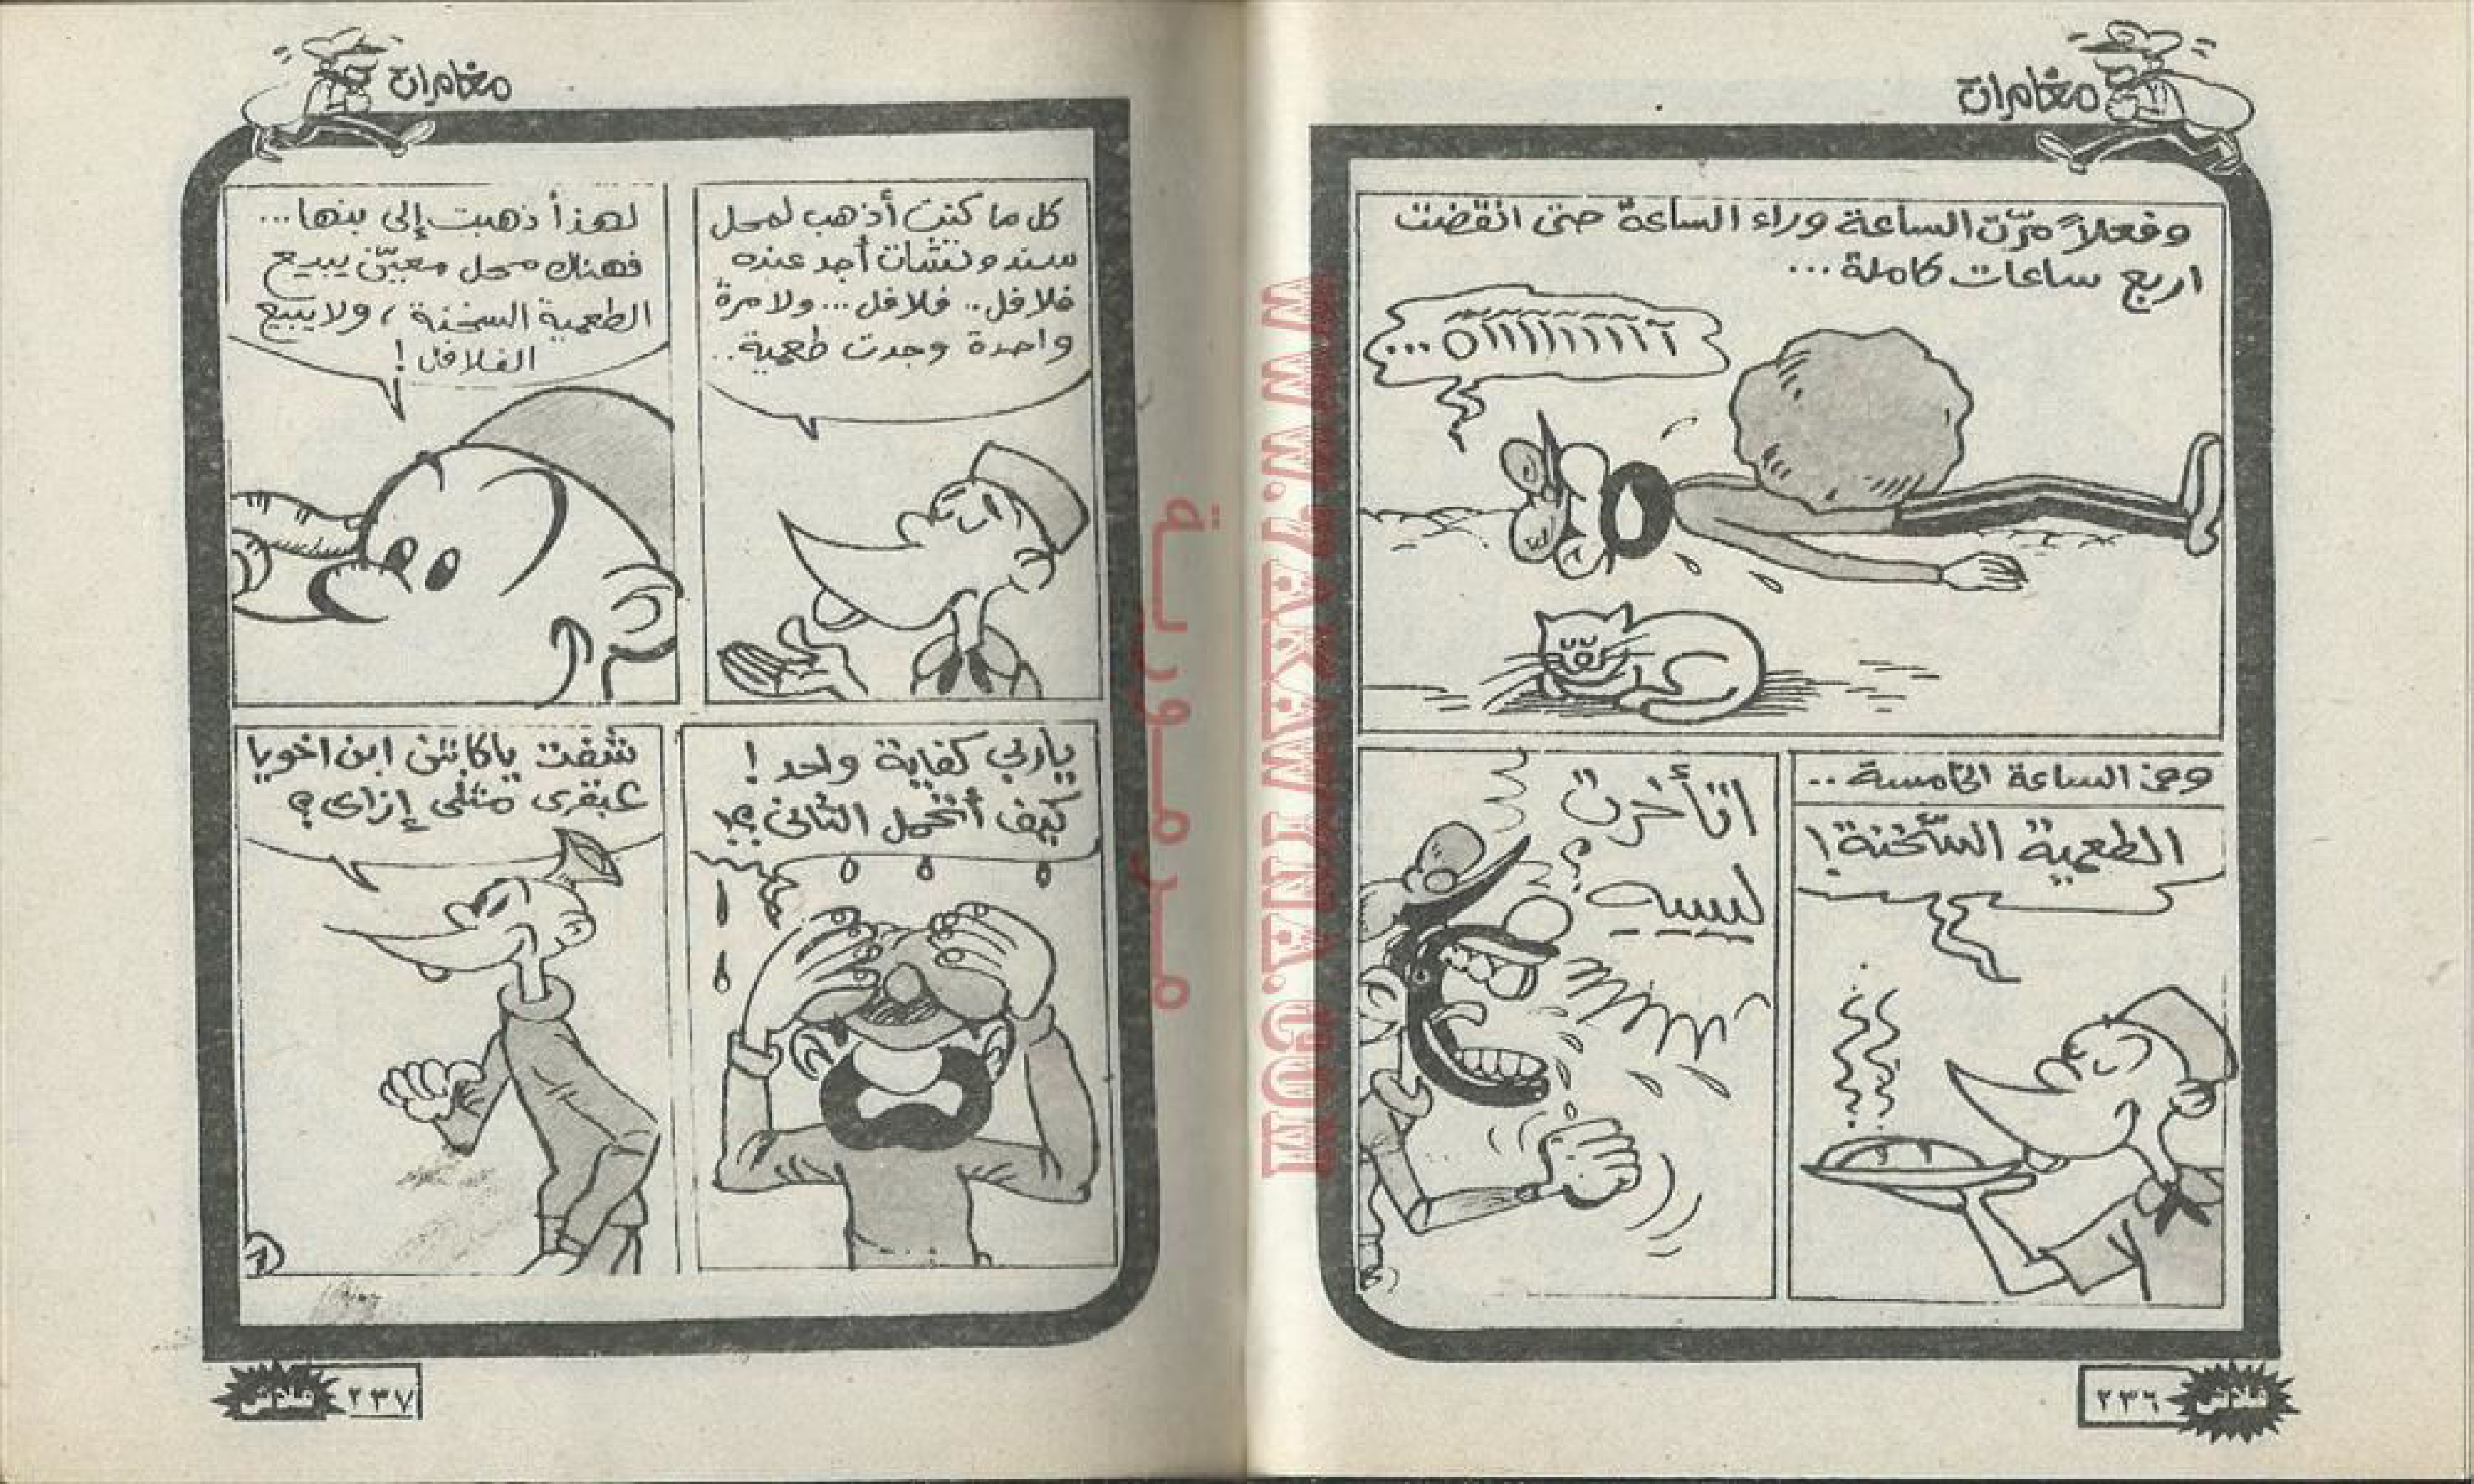 مغامرات
وفعلاً مرّت الساعة وراء الساعة حتى انقضت
اربع ساعات كاملة...
آآآآآآآآآه...
وفى الساعة الخامسة..
الطعمية السّخنة!
اتأخرت
ليييه
؟
٢٣٦
فلاش
مغامرات
كل ما كنت أذهب لمحل
سندوتشات أجد عنده
فلافل.. فلافل... ولا مرة
واحدة وجدت طعمية..
لهذا ذهبت إلى بنها...
فهناك محل معيّن يبيع
الطعمية السخنة، ولا يبيع
الفلافل!
ياربي كفاية واحد!
كيف أتحمل الثانى؟!
شفت ياكابتن ابن اخويا
عبقرى مثلى إزاى؟
٢٣٧
فلاش
WWW.ARABLWATNA.COM